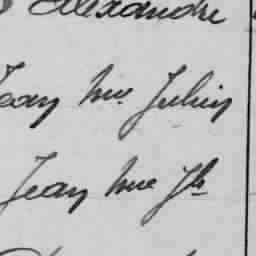 Alexandre
Jean Mie Julien
Jean Mie Jh